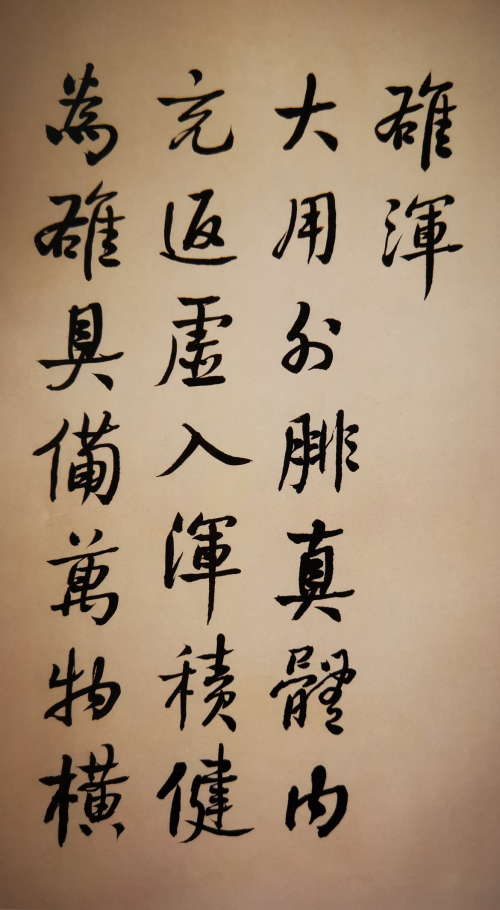 雄渾
大用外腓真體內
充返虛入渾積健
為雄具備萬物橫